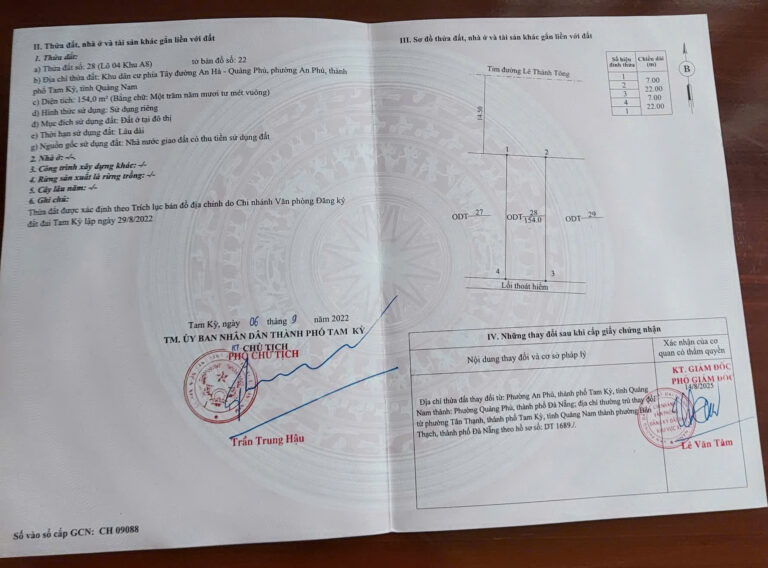 II. Thửa đất, nhà ở và tài sản khác gắn liền với đất
1. Thửa đất:
a) Thửa đất số: 28 (Lô 04 Khu A8) tờ bản đồ số: 22
b) Địa chỉ thửa đất: Khu dân cư phía Tây đường An Hà - Quảng Phú, phường An Phú, thành
phố Tam Kỳ, tỉnh Quảng Nam
c) Diện tích: 154,0 m² (Bằng chữ: Một trăm năm mươi tư mét vuông)
d) Hình thức sử dụng: Sử dụng riêng
đ) Mục đích sử dụng đất: Đất ở tại đô thị
e) Thời hạn sử dụng đất: Lâu dài
g) Nguồn gốc sử dụng đất: Nhà nước giao đất có thu tiền sử dụng đất
2. Nhà ở: -/-
3. Công trình xây dựng khác: -/-
4. Rừng sản xuất là rừng trồng: -/-
5. Cây lâu năm: -/-
6. Ghi chú:
Thửa đất được xác định theo Trích lục bản đồ địa chính do Chi nhánh Văn phòng Đăng ký
đất đai Tam Kỳ lập ngày 29/8/2022
Tam Kỳ, ngày 06 tháng 9 năm 2022
TM. ỦY BAN NHÂN DÂN THÀNH PHỐ TAM KỲ
KT. CHỦ TỊCH
PHÓ CHỦ TỊCH
Trần Trung Hậu
Số vào sổ cấp GCN: CH 09088
III. Sơ đồ thửa đất, nhà ở và tài sản khác gắn liền với đất
Số hiệu đỉnh thửa
Chiều dài (m)
1
7.00
2
22.00
3
7.00
4
22.00
1
B
Tim đường Lê Thánh Tông
14.50
1
2
ODT 27
ODT 28
154.0
ODT 29
4
3
Lối thoát hiểm
IV. Những thay đổi sau khi cấp giấy chứng nhận
Nội dung thay đổi và cơ sở pháp lý
Xác nhận của cơ
quan có thẩm quyền
Địa chỉ thửa đất thay đổi từ: Phường An Phú, thành phố Tam Kỳ, tỉnh Quảng
Nam thành: Phường Quảng Phú, thành phố Đà Nẵng; địa chỉ thường trú thay đổi
từ phường Tân Thạnh, thành phố Tam Kỳ, tỉnh Quảng Nam thành phường Bàn
Thạch, thành phố Đà Nẵng theo hồ sơ số: DT 1689./.
KT. GIÁM ĐỐC
PHÓ GIÁM ĐỐC
14/8/2025
Lê Văn Tâm